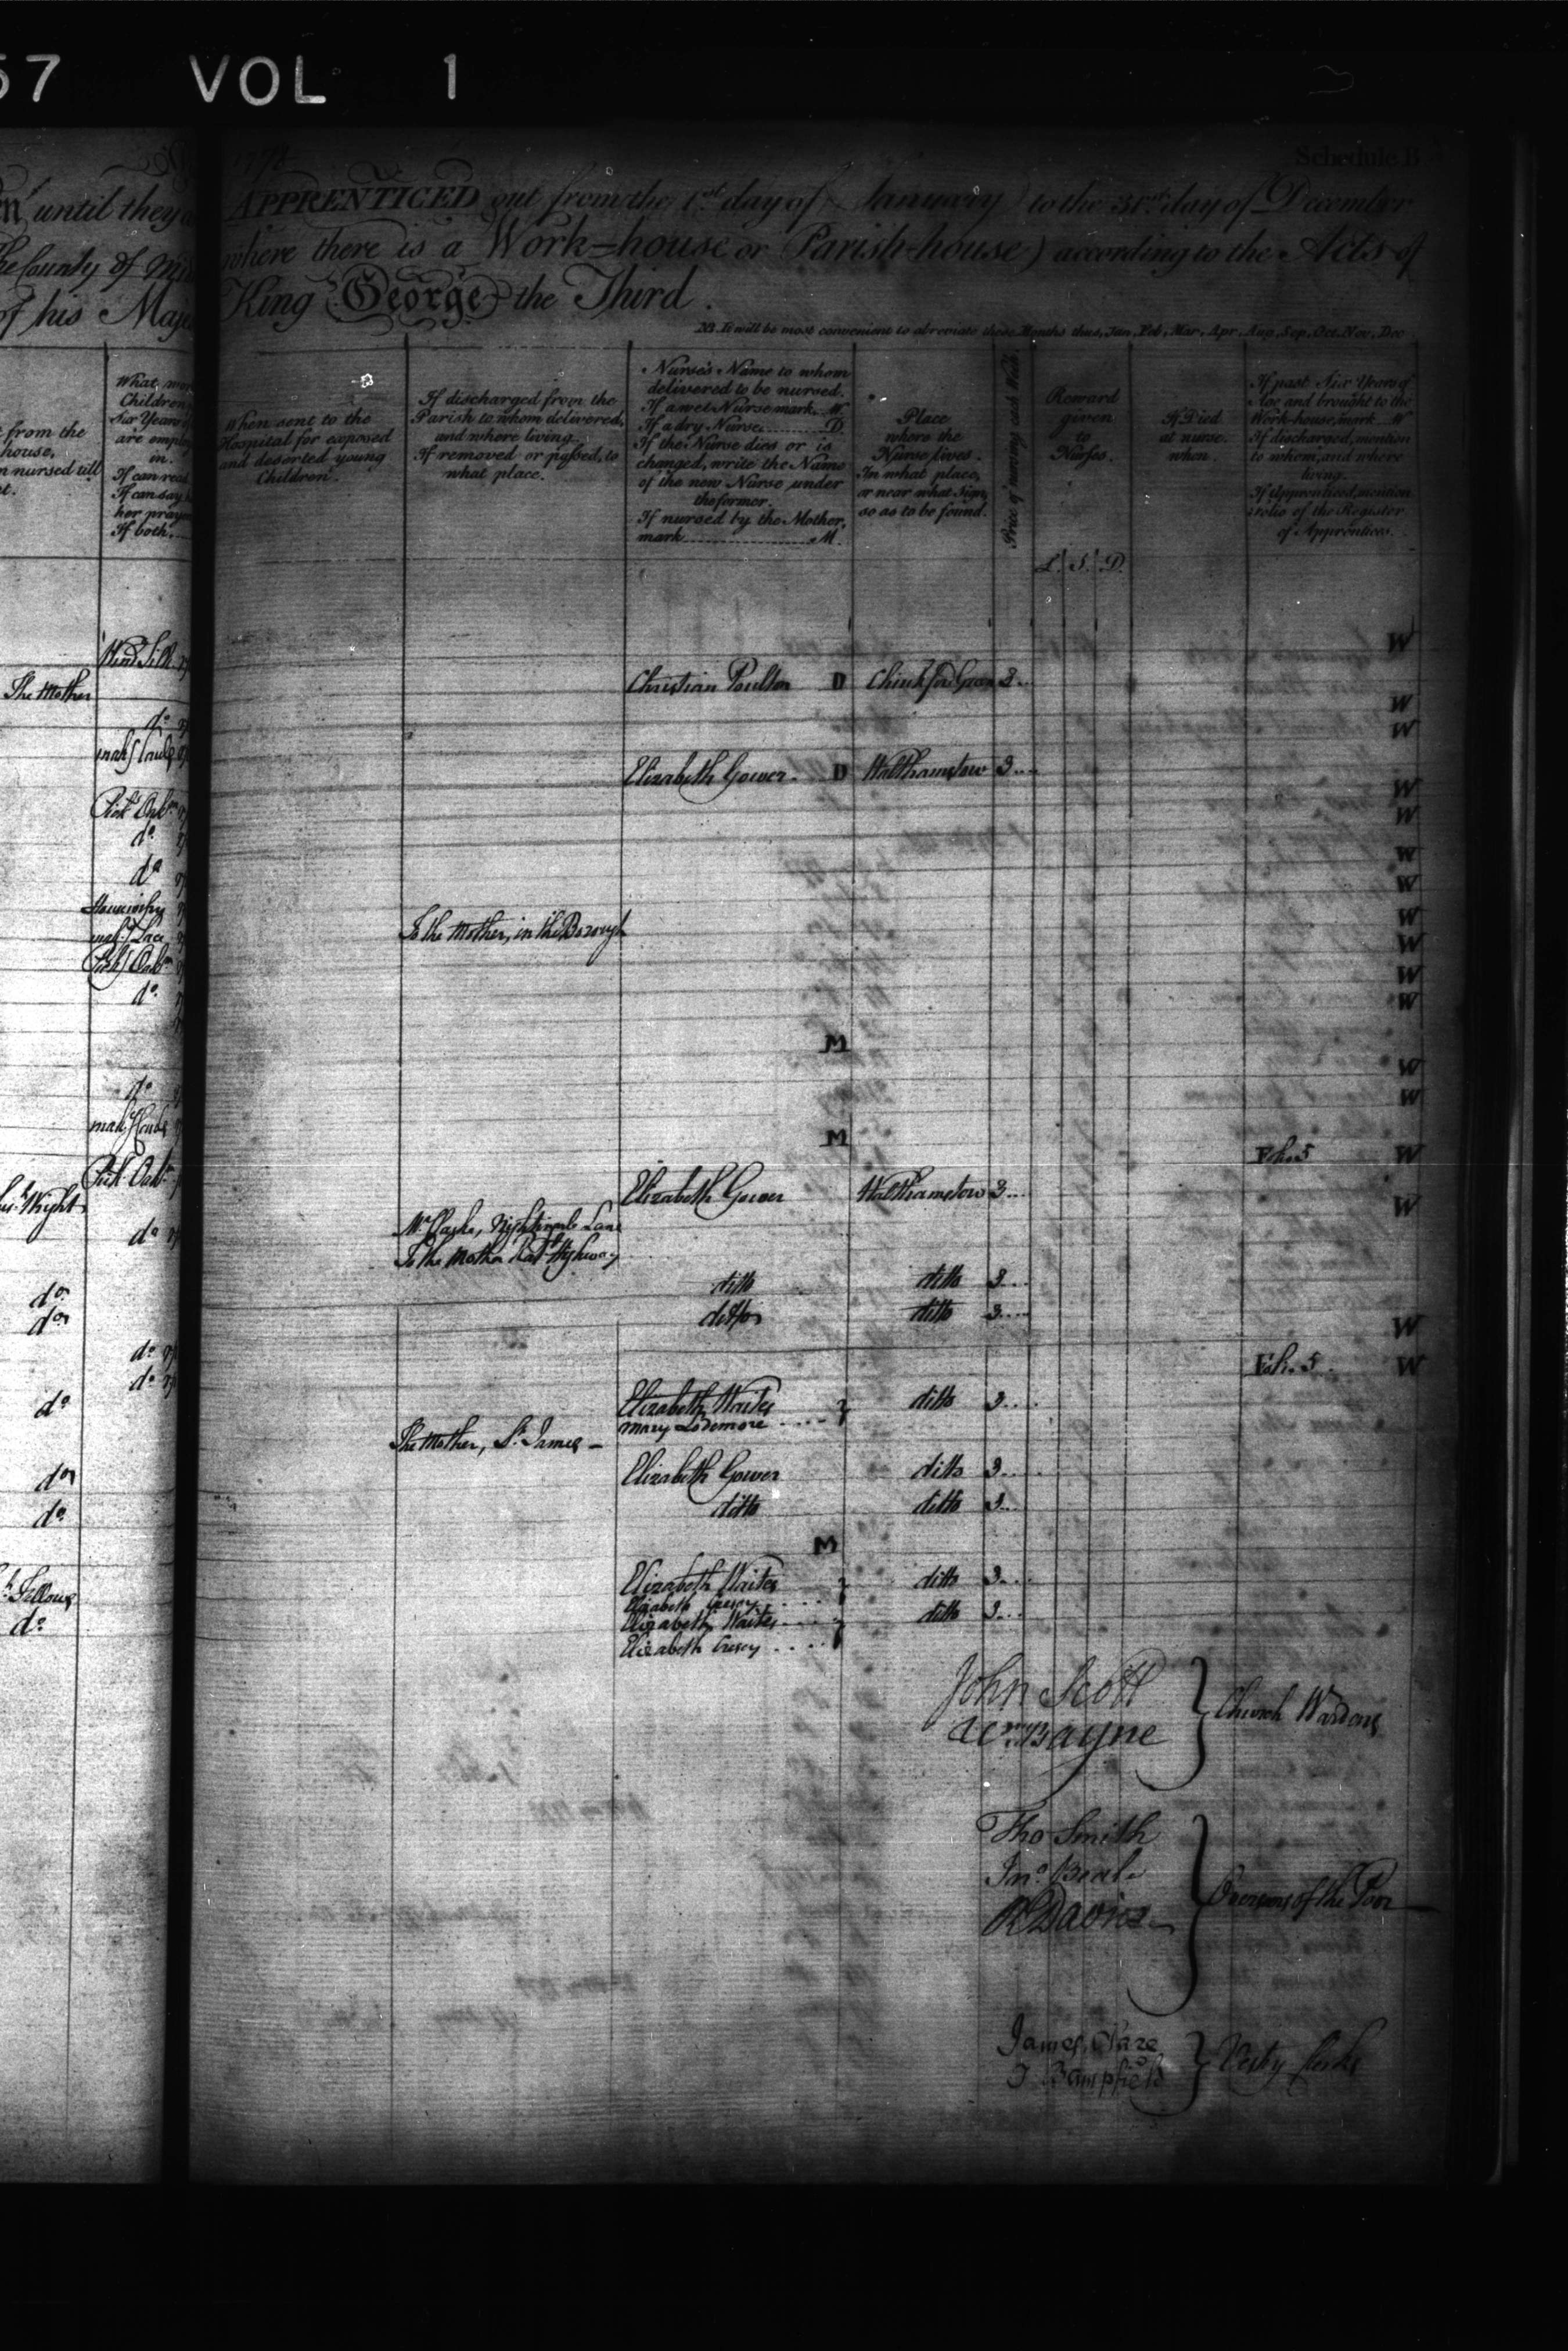 57 VOL 1
Schedule B
until they
APPRENTICED out from the 1st day of January to the 31st day of December
the County of Mid
where there is a Work=house or Parish-house) according to the Acts of
of his Maje
King George the Third.
NB. It will be most convenient to abreviate these Months thus, Jan, Feb, Mar, Apr, Aug, Sep, Oct, Nov, Dec
from the
house,
n nursed till
What
Children
Six Years
are emplo
in.
If can read
If can say
her pray
If both.
When sent to the
Hospital for exposed
and deserted young
Children.
If discharged from the
Parish to whom delivered,
and where living.
If removed or passed, to
what place.
Nurse's Name to whom
delivered to be nursed.
If a wet Nurse mark W.
If a dry Nurse D.
If the Nurse dies or is
changed, write the Name
of the new Nurse under
the former.
If nursed by the Mother,
mark M.
Place
where the
Nurse lives.
In what place,
or near what Sign,
so as to be found.
Price of nursing each Week
Reward
given
to
Nurses.
L. S. D.
If Died
at nurse
when.
If past Six Years of
Age and brought to the
Work-house, mark W
If discharged, mention
to whom, and where
living.
If Apprenticed, mention
Folio of the Register
of Apprentices.
Wind Silk W
The Mother Christian Poulton D Chinkford Green 3
do W
W
Elizabeth Gower D Walthamstow 3
Pick Oakm W
do W
do W
Housewifry W
W
To the Mother, in the Borough W
W
do W
M
do W
W
M
Folio 5 W
Elizabeth Gower Walthamstow 3
Wright W
do Mr Clarke, Nightingale Lane
To the Mother Rat: Highway
do ditto ditto 3
do ditto ditto 3
do W
do Folio 5 W
do Elizabeth Waites ditto 3
Mary Lodemore
The Mother, St James
do Elizabeth Gower ditto 3
do ditto ditto 3
M
Fellows Elizabeth Waites ditto 3
Elizabeth Cresey
do Elizabeth Waites ditto 3
Elizabeth Cresey
John Scott
Wm Bayne
Church Wardens
Tho Smith
Jno Beale
R Davies
Overseers of the Poor
James
T Bampfield
Vestry Clerks